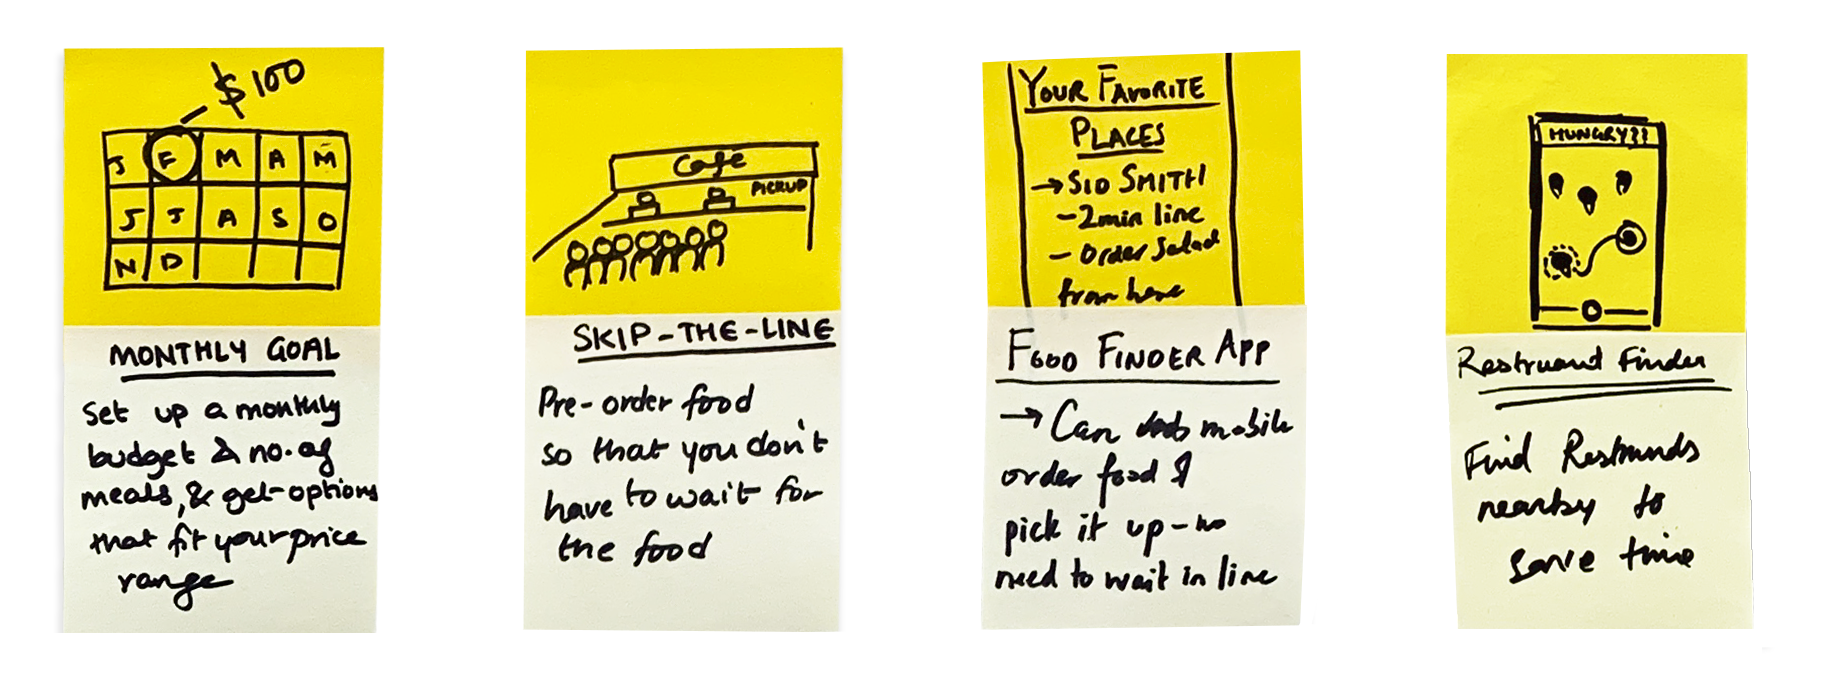 $100
J F M A M
J J A S O
N D
MONTHLY GOAL
Set up a monthly
budget & no. of
meals, & get options
that fit your price
range
Café
PICKUP
SKIP-THE-LINE
Pre-order food
so that you don't
have to wait for
the food
YOUR FAVORITE
PLACES
→ SID SMITH
- 2min line
- Order Salad
from here
FOOD FINDER APP
→ Can mobile
order food &
pick it up - no
need to wait in line
HUNGRY??
Restruant Finder
Find Restrunds
nearby to
save time